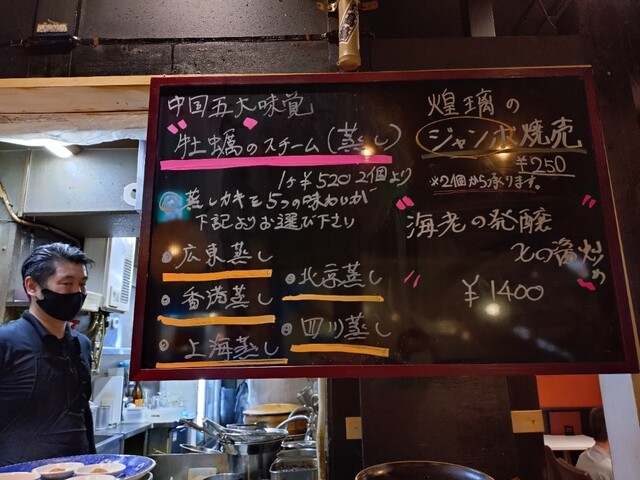 中国五大味覚
牡蠣のスチーム(蒸し)
1ヶ¥520 2個より
蒸しカキを5つの味わいが
下記よりお選び下さい
広東蒸し
香港蒸し
上海蒸し
北京蒸し
四川蒸し
煌璃の
ジャンボ焼売
¥250
※2個から承ります。
海老の発酵
¥1400